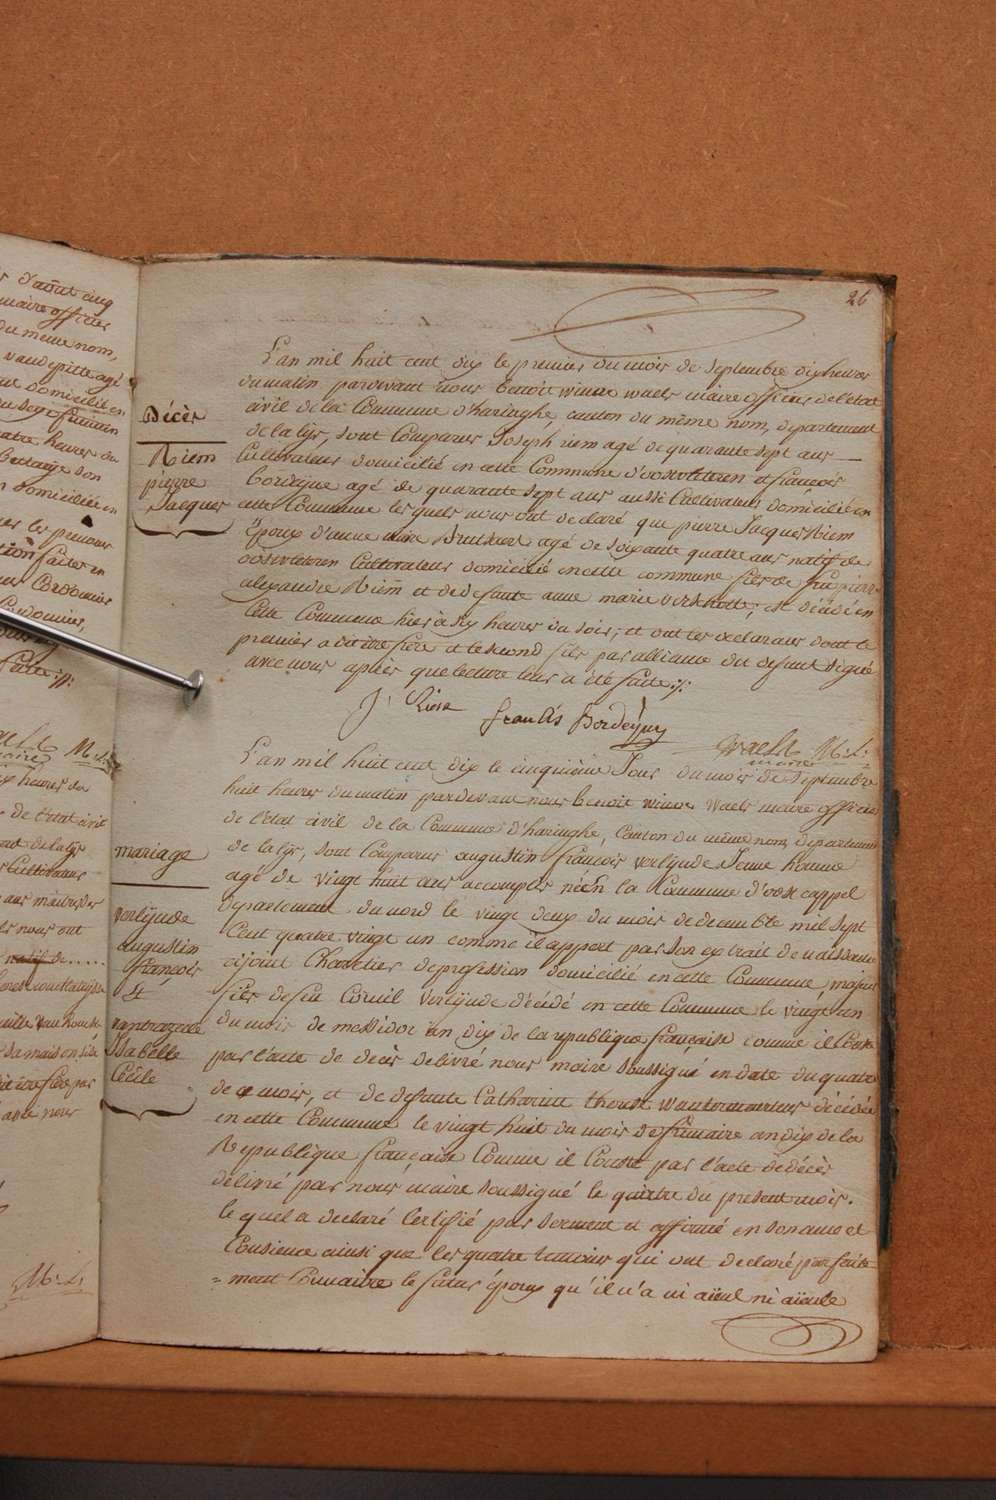 26
L'an mil huit cent dix le premier du mois de Septembre dix heures
du matin pardevant nous Benoit winoc waels maire officier de l'etat
civil de la Commune d'haringhe, canton du même nom, departement
de la lijs, sont Comparus Joseph riem agé de quarante sept ans
Cultivateur domicilié en cette Commune d'oostvleteren et françois
Bordeyne agé de quarante sept ans aussi Cultivateur domicilié en
cette Commune lesquels nous ont declaré que pierre Jacques Riem
Époux d'anne marie agé de soixante quatre ans natif de
oostvleteren Cultivateur domicilié en cette commune fils de feu pierre
alexandre Riem et de defunte anne marie verschotte; est décédé en
Cette Commune hier à six heures du soir; et ont les declarans dont le
premier a dit être frère et le second fils par alliance du defunt Signé
avec nous après que lecture leur a été faite ://:
J Riem
francis Bordeyne
Waels M.L:
maire
Décès
Riem
pierre
Jacques
L'an mil huit cent dix le cinquième Jour du mois de Septembre
huit heures du matin pardevant nous benoit winoc waels maire officier
de l'etat civil de la Commune d'haringhe, Canton du même nom, departement
de la lijs, sont Comparus augustin françois verlijnde Jeune homme
agé de vingt huit ans accomplis né en la Commune d'oost cappel
departement du nord le vingt deux du mois de decembre mil sept
Cent quatre vingt un comme il appert par son extrait de naissance
cijoint Charetier de profession domicilié en cette Commune, majeur
fils de feu Corneil verlijnde décédé en cette Commune le vingt un
du mois de messidor an dix de la republique française comme il Conste
par l'acte de decès delivré nous maire soussigné en date du quatre
de ce mois, et de defunte Catharine therese décédée
en cette Commune le vingt huit du mois de frimaire an dix de la
Republique française Comme il Conste par l'acte de décès
délivré par nous maire soussigné le quatre du present mois.
le quel a declaré Certifié par serment et affirmé en son ame et
Consience ainsi que les quatre temoins qui ont declaré parfaite
=ment Connaitre le futur époux qu'il n'a ni aïeul ni aïeule
mariage
verlijnde
augustin
françois
&
Isabelle
Cecile
d'aout cinq
maire officier
du meme nom,
vandepitte agé
domicilié en
quatre heures du
domiciliée en
les prenoms
faites en
M.L:
heures du
de l'etat civil
de la lijs
Cultivateur
nous ont
natif de.....
maison sise
être frère par
avec nous
M.L: